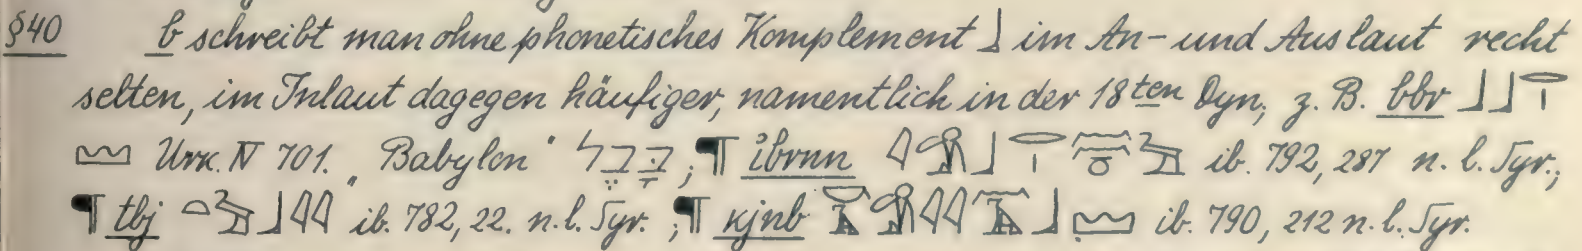 §40 b schreibt man ohne phonetisches Komplement 𓃀 im An- und Auslaut recht
selten, im Inlaut dagegen häufiger, namentlich in der 18ten Dyn, z. B. bbr 𓃀𓃀𓂋𓏤
𓈉 Urk. IV 701. „Babylon“ בָּבֶל; ¶ ibrnn 𓇋 𓃀𓂋𓏤 ib. 792, 287 n. l. Syr.;
¶ tbj 𓏏 𓃀𓇋𓇋 ib. 782, 22. n. l. Syr. ; ¶ kjnb 𓇋𓇋 𓃀𓈉 ib. 790, 212 n. l. Syr.